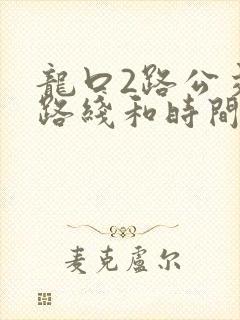 龍口2路公交
路綫和時間
麦克盧尔